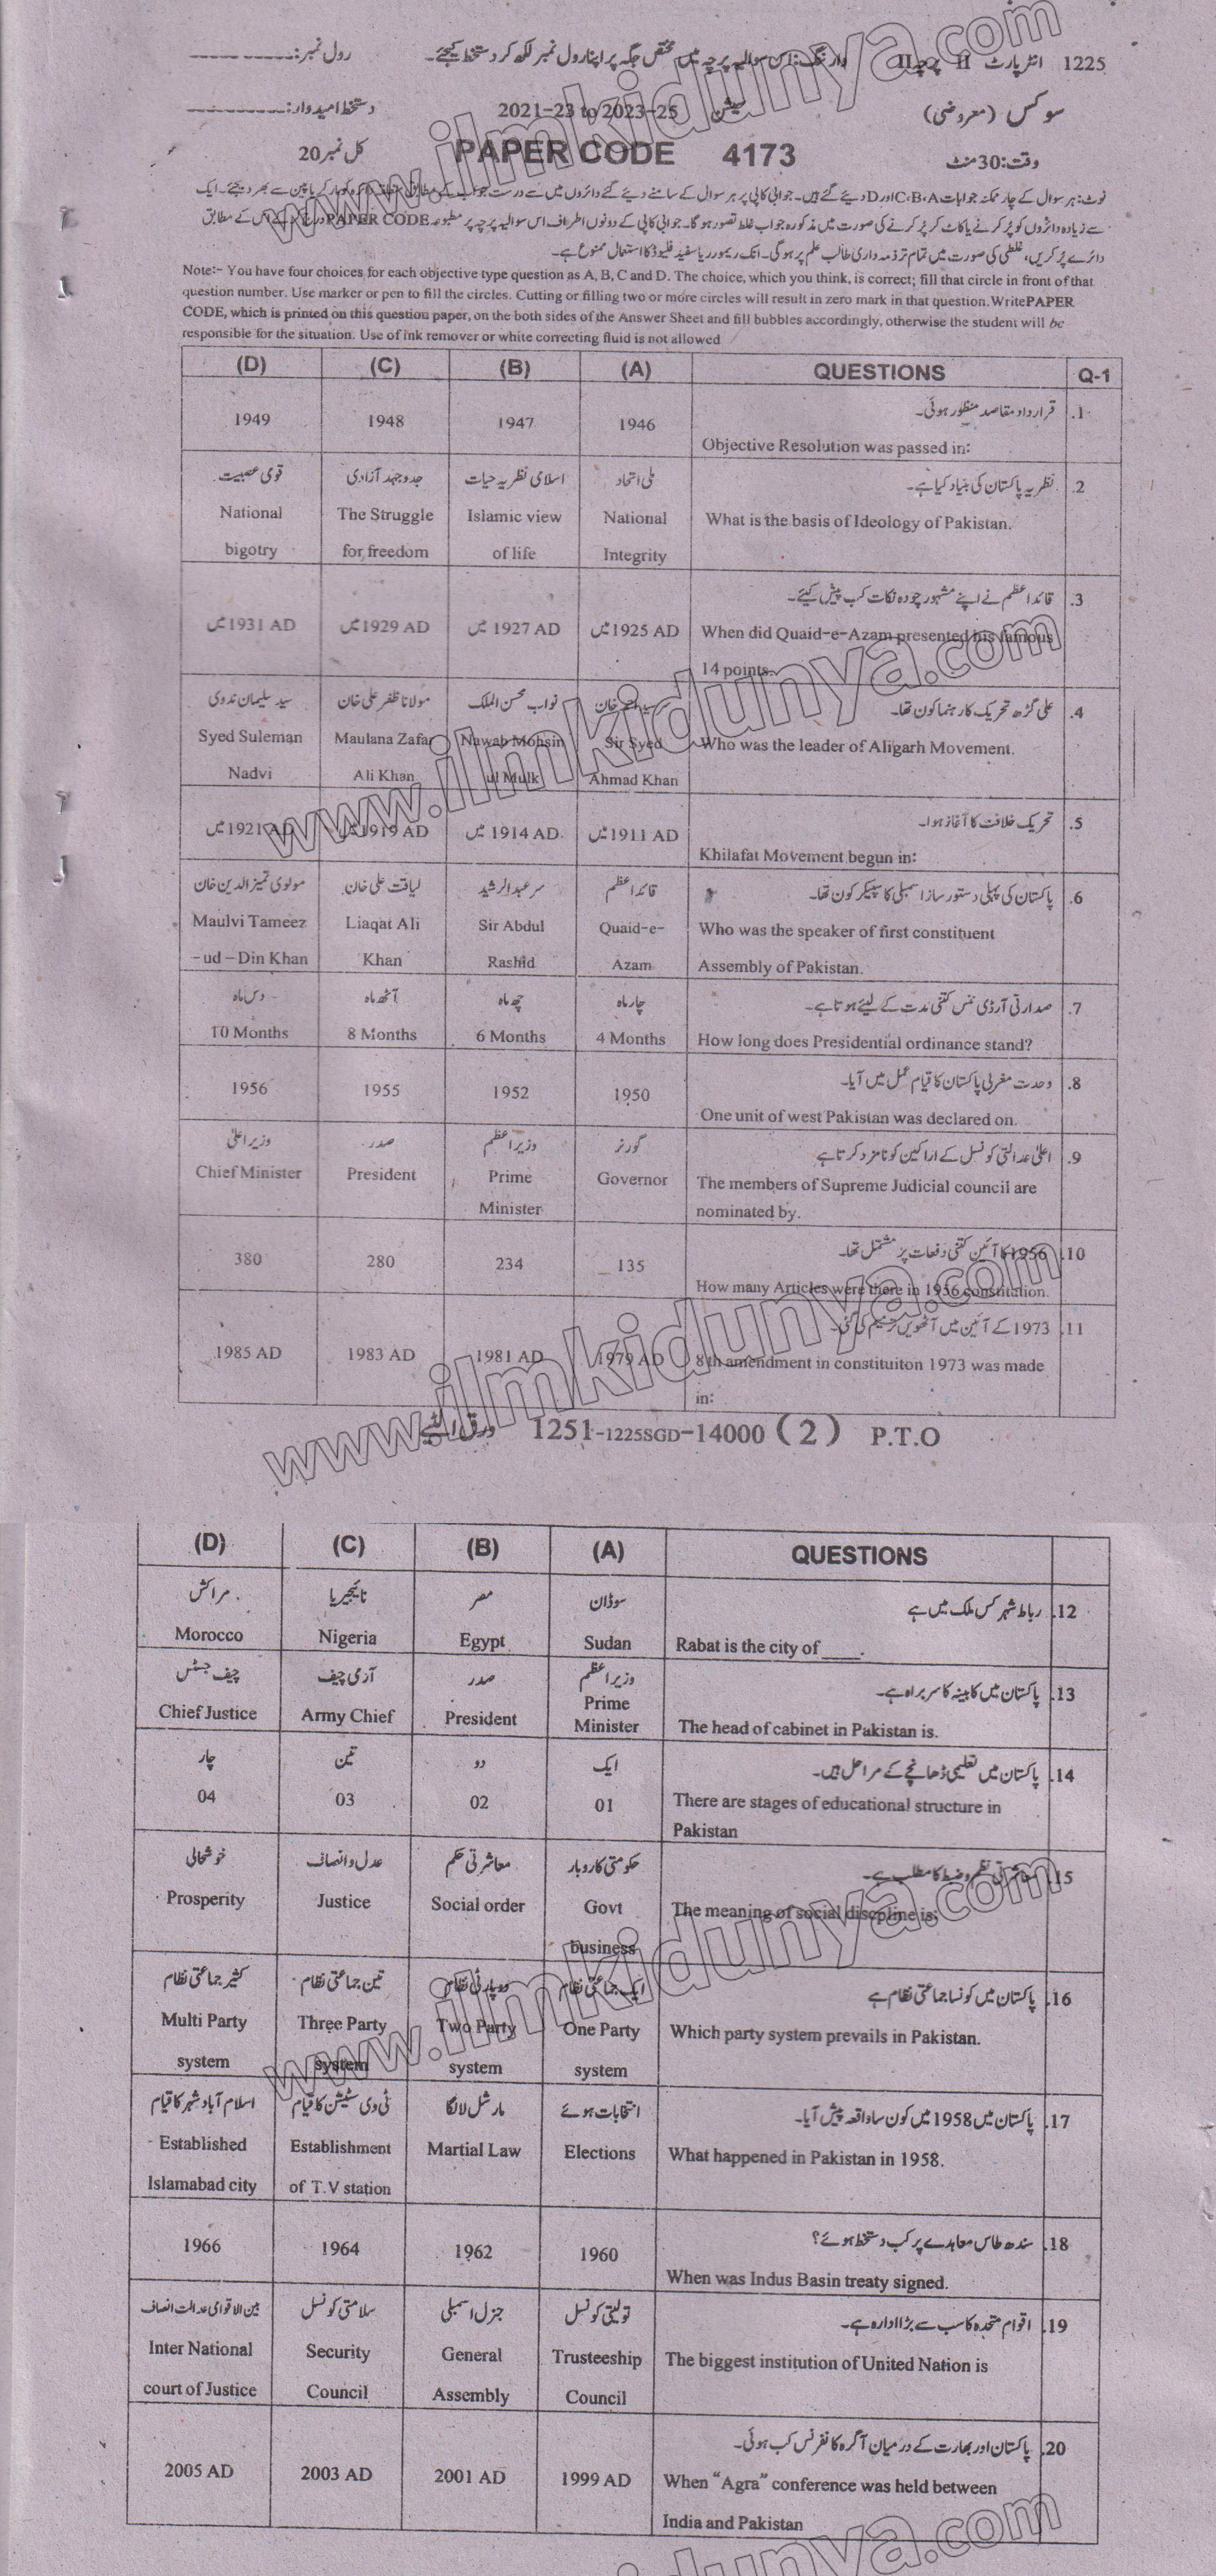 1225 انٹر پارٹ II پرچہ II وارننگ: اس سوالیہ پرچہ میں مختص جگہ پر اپنا رول نمبر لکھ کر دستخط کیجئے۔ رول نمبر: ------
سوکس (معروضی) سیشن 2021-23 to 2023-25 دستخط امیدوار: ------
وقت: 30 منٹ PAPER CODE 4173 کل نمبر 20
نوٹ: ہر سوال کے چار ممکنہ جوابات C،B،A اور D دیئے گئے ہیں۔ جوابی کاپی پر ہر سوال کے سامنے دیئے گئے دائروں میں سے درست جواب کے مطابق متعلقہ دائرہ کو مارکر یا پین سے بھر دیجئے۔ ایک
سے زیادہ دائروں کو پُر کرنے یا کاٹ کر پُر کرنے کی صورت میں مذکورہ جواب غلط تصور ہوگا۔ جوابی کاپی کے دونوں اطراف اس سوالیہ پرچہ پر مطبوعہ PAPER CODE درج کرکے اس کے مطابق
دائرے پُر کریں، غلطی کی صورت میں تمام تر ذمہ داری طالب علم پر ہوگی۔ انک ریموور یا سفید فلیوڈ کا استعمال ممنوع ہے۔
Note:- You have four choices for each objective type question as A, B, C and D. The choice, which you think, is correct; fill that circle in front of that
question number. Use marker or pen to fill the circles. Cutting or filling two or more circles will result in zero mark in that question.WritePAPER
CODE, which is printed on this question paper, on the both sides of the Answer Sheet and fill bubbles accordingly, otherwise the student will be
responsible for the situation. Use of ink remover or white correcting fluid is not allowed
(D) (C) (B) (A) QUESTIONS Q-1
1. قرارداد مقاصد منظور ہوئی۔
1949 1948 1947 1946
Objective Resolution was passed in:
2. نظریہ پاکستان کی بنیاد کیا ہے۔
قومی عصبیت جدوجہد آزادی اسلامی نظریہ حیات ملی اتحاد
National The Struggle Islamic view National What is the basis of Ideology of Pakistan.
bigotry for freedom of life Integrity
3. قائداعظم نے اپنے مشہور چودہ نکات کب پیش کیئے۔
1931 AD میں 1929 AD میں 1927 AD میں 1925 AD میں When did Quaid-e-Azam presented his famous
14 points.
4. علی گڑھ تحریک کا رہنما کون تھا۔
سید سلیمان ندوی مولانا ظفر علی خان نواب محسن الملک سرسید احمد خان
Syed Suleman Maulana Zafar Nawab Mohsin Sir Syed Who was the leader of Aligarh Movement.
Nadvi Ali Khan ul Mulk Ahmad Khan
5. تحریک خلافت کا آغاز ہوا۔
1921 AD میں 1919 AD میں 1914 AD میں 1911 AD میں
Khilafat Movement begun in:
6. پاکستان کی پہلی دستور ساز اسمبلی کا سپیکر کون تھا۔
مولوی تمیز الدین خان لیاقت علی خان سر عبدالرشید قائداعظم
Maulvi Tameez Liaqat Ali Sir Abdul Quaid-e- Who was the speaker of first constituent
-ud-Din Khan Khan Rashid Azam Assembly of Pakistan.
7. صدارتی آرڈی ننس کتنی مدت کے لیئے ہوتا ہے۔
دس ماہ آٹھ ماہ چھ ماہ چار ماہ
10 Months 8 Months 6 Months 4 Months How long does Presidential ordinance stand?
8. وحدت مغربی پاکستان کا قیام عمل میں آیا۔
1956 1955 1952 1950
One unit of west Pakistan was declared on.
9. اعلیٰ عدالتی کونسل کے اراکین کو نامزد کرتا ہے
وزیراعلیٰ صدر وزیراعظم گورنر
Chief Minister President Prime Governor The members of Supreme Judicial council are
Minister nominated by.
10. 1956 کا آئین کتنی دفعات پر مشتمل تھا۔
380 280 234 135
How many Articles were there in 1956 constitution.
11. 1973 کے آئین میں آٹھویں ترمیم کی گئی۔
1985 AD 1983 AD 1981 AD 1979 AD 8th amendment in constituiton 1973 was made
in:
ورق الٹیے 1251-1225SGD-14000 (2) P.T.O
(D) (C) (B) (A) QUESTIONS
12. رباط شہر کس ملک میں ہے
مراکش نائیجیریا مصر سوڈان
Morocco Nigeria Egypt Sudan Rabat is the city of ____.
13. پاکستان میں کابینہ کا سربراہ ہے۔
چیف جسٹس آرمی چیف صدر وزیراعظم
Chief Justice Army Chief President Prime Minister The head of cabinet in Pakistan is.
14. پاکستان میں تعلیمی ڈھانچے کے مراحل ہیں۔
چار تین دو ایک
04 03 02 01 There are stages of educational structure in
Pakistan
15. معاشرتی نظم و ضبط کا مطلب ہے۔
خوشحالی عدل و انصاف معاشرتی حکم حکومتی کاروبار
Prosperity Justice Social order Govt The meaning of social discpline is:
business
16. پاکستان میں کونسا جماعتی نظام ہے
کثیر جماعتی نظام تین جماعتی نظام دو پارٹی نظام ایک جماعتی نظام
Multi Party Three Party Two Party One Party Which party system prevails in Pakistan.
system system system system
17. پاکستان میں 1958 میں کون سا واقعہ پیش آیا۔
اسلام آباد شہر کا قیام ٹی وی سٹیشن کا قیام مارشل لا لگا انتخابات ہوئے
Established Establishment Martial Law Elections What happened in Pakistan in 1958.
Islamabad city of T.V station
18. سندھ طاس معاہدے پر کب دستخط ہوئے؟
1966 1964 1962 1960
When was Indus Basin treaty signed.
19. اقوام متحدہ کا سب سے بڑا ادارہ ہے۔
بین الاقوامی عدالت انصاف سلامتی کونسل جنرل اسمبلی تولیتی کونسل
Inter National Security General Trusteeship The biggest institution of United Nation is
court of Justice Council Assembly Council
20. پاکستان اور بھارت کے درمیان آگرہ کانفرنس کب ہوئی۔
2005 AD 2003 AD 2001 AD 1999 AD When "Agra" conference was held between
India and Pakistan
www.ilmkidunya.com
www.ilmkidunya.com
www.ilmkidunya.com
www.ilmkidunya.com